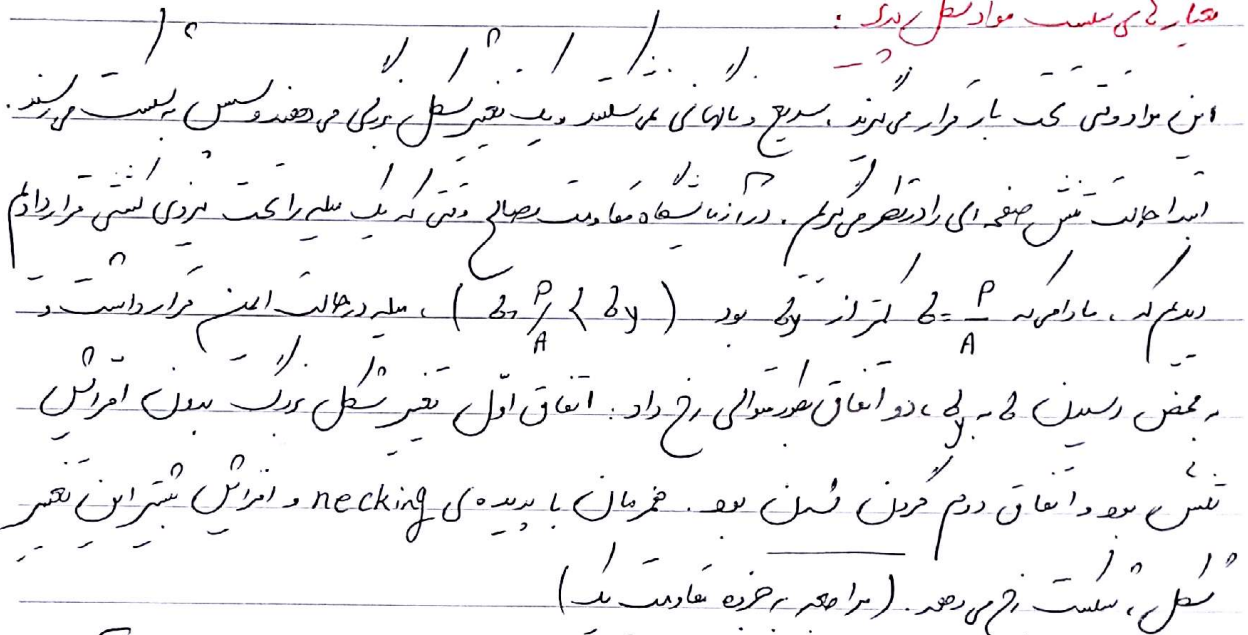 معیارهای شکست مواد شکل پذیر :
این مواد وقتی تحت بار قرار می گیرند، سریع و ناگهانی نمی شکنند و یک تغییر شکل بزرگی می دهند و سپس به شکست می رسند.
ابتدا حالت تنش صفحه ای را در نظر می گیریم. در آزمایشگاه مقاومت مصالح وقتی که یک میله را تحت نیروی کششی قرار دادیم
دیدیم که، مادامی که σ = P/A کمتر از σy بود (σ = P/A < σy)، میله در حالت ایمن قرار داشت و
به محض رسیدن σ به σy، دو اتفاق بطور متوالی رخ داد: اتفاق اوّل تغییر شکل بزرگ بدون افزایش
تنش بود و اتفاق دوم گردن شدن بود. همزمان با پدیده ی necking و افزایش بیشتر این تغییر
شکل، شکست رخ می دهد. (مراجعه به جزوه مقاومت یک)